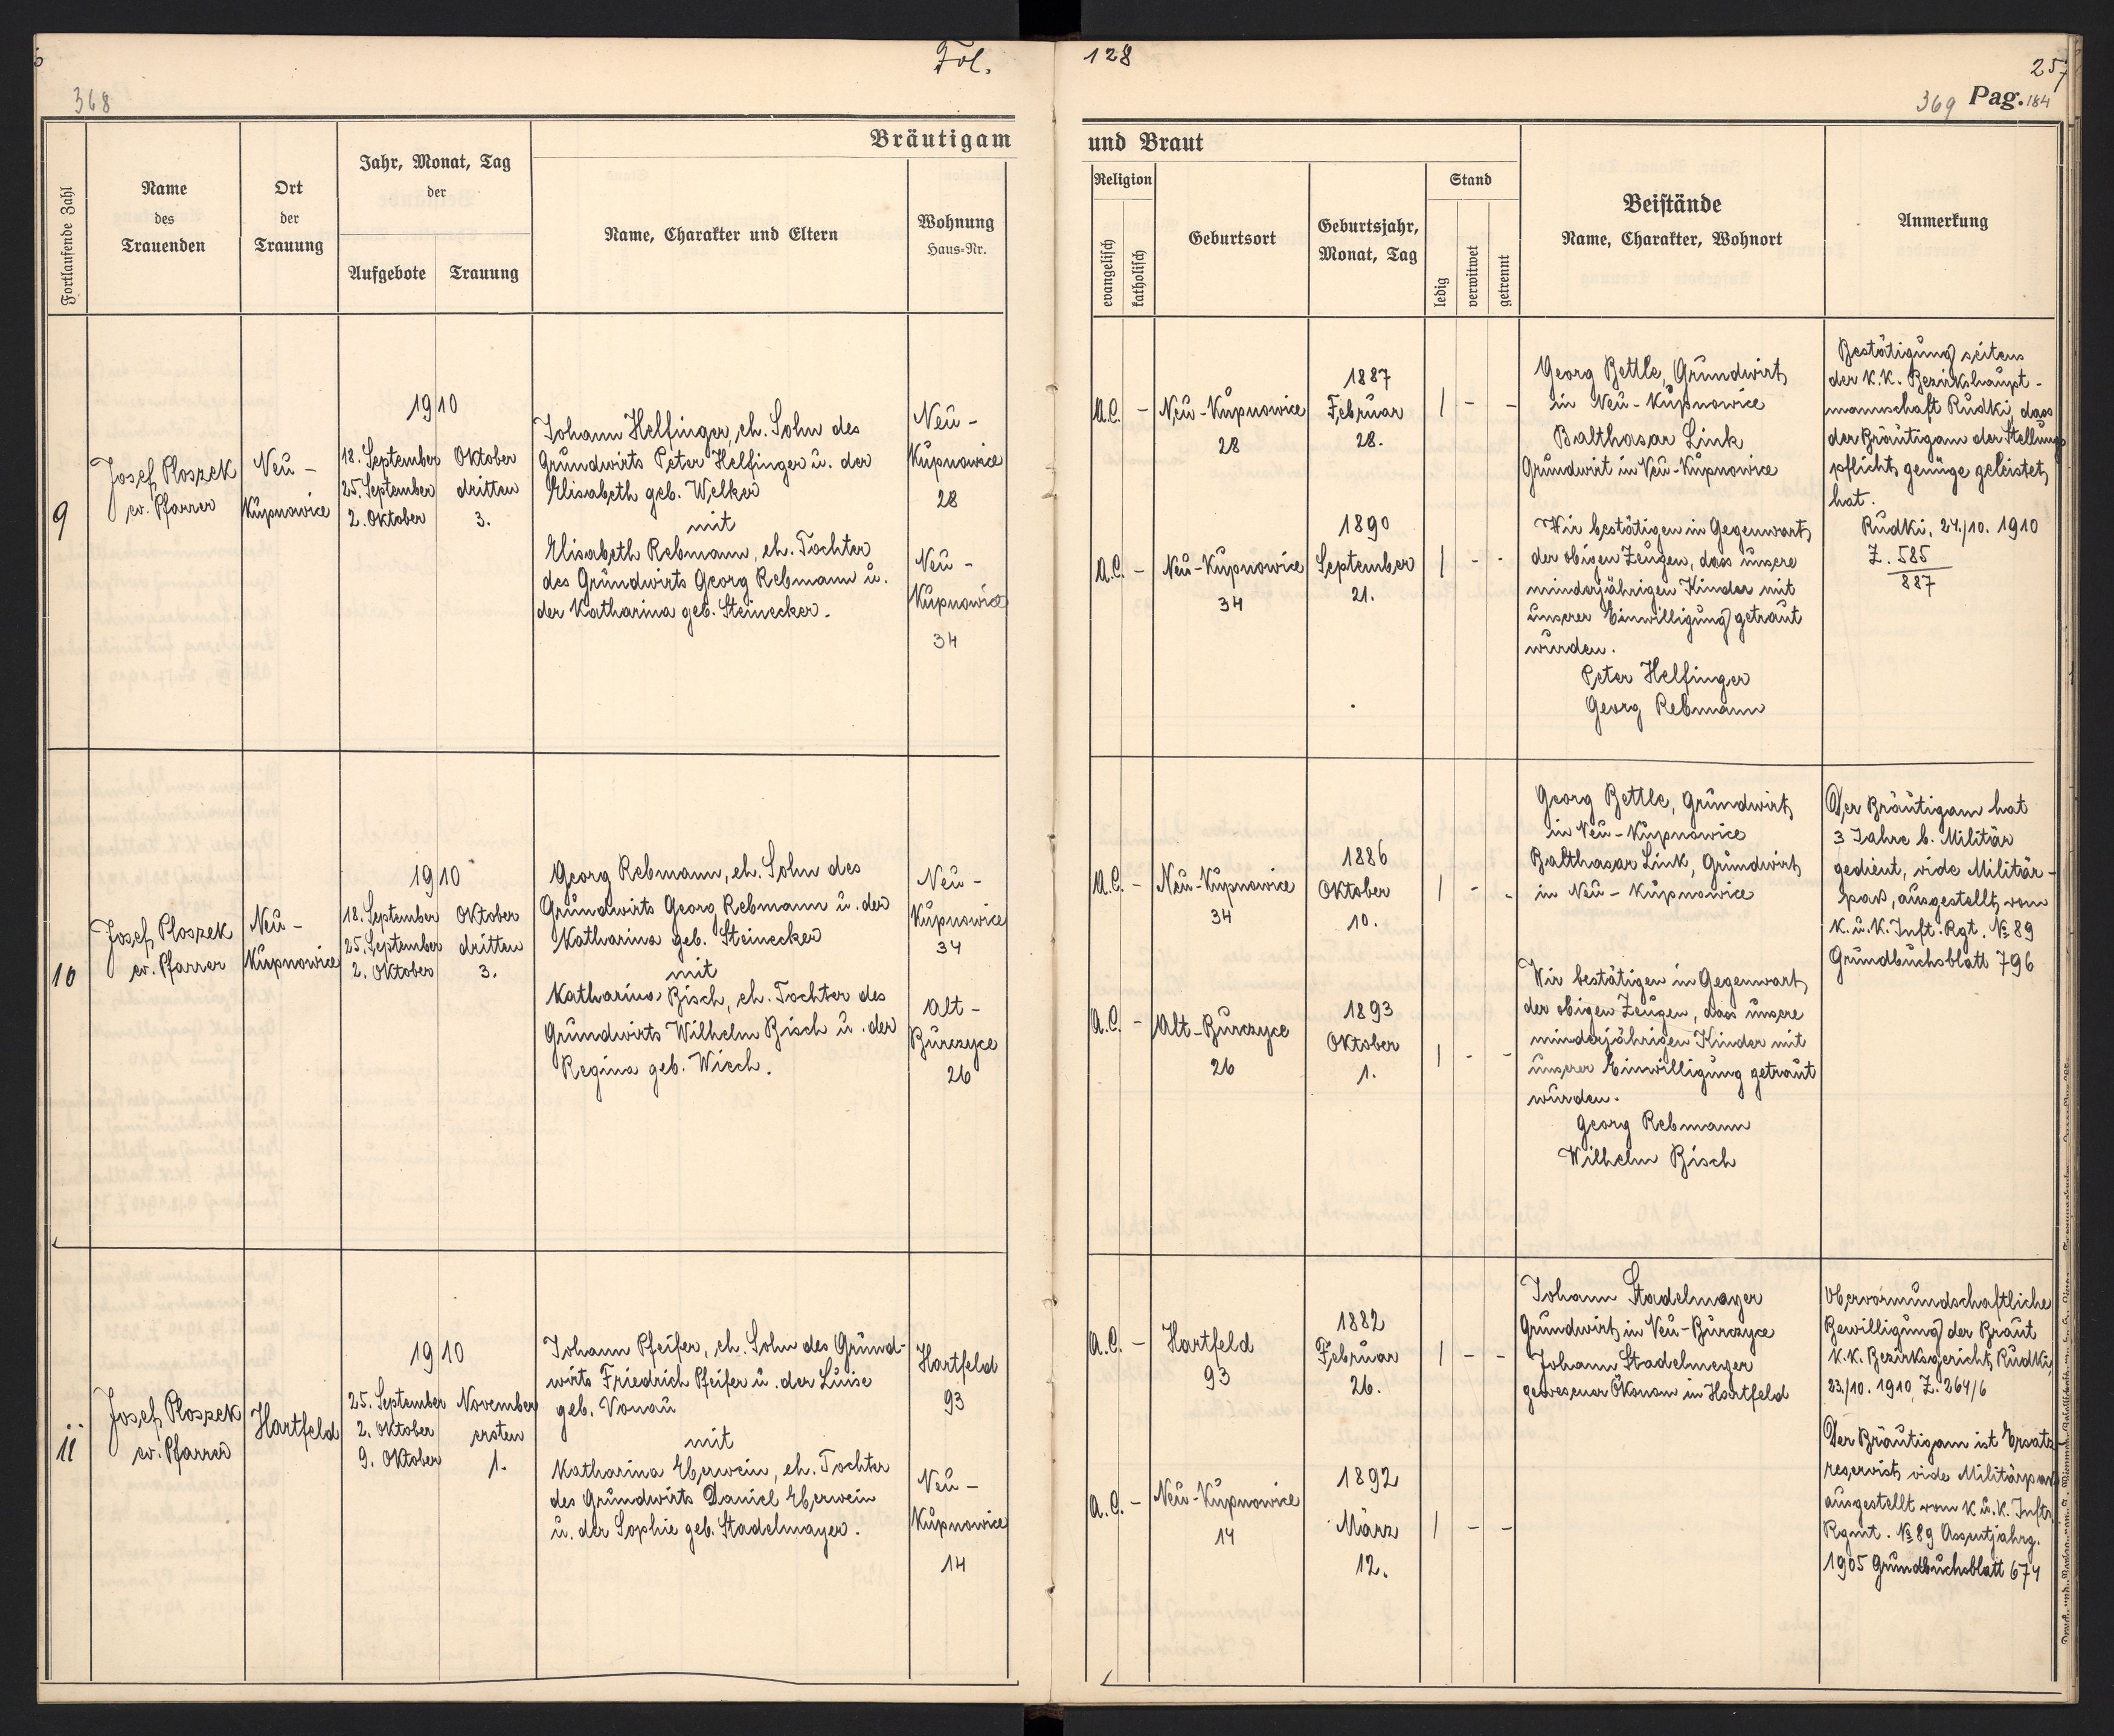 Fol.
128
257
368
369 Pag. 184
Bräutigam
und Braut
Fortlaufende Zahl
Name
des
Trauenden
Ort
der
Trauung
Jahr, Monat, Tag
der
Aufgebote
Trauung
Name, Charakter und Eltern
Wohnung
Haus=Nr.
Religion
evangelisch
katholisch
Geburtsort
Geburtsjahr,
Monat, Tag
Stand
ledig
verwitwet
getrennt
Beistände
Name, Charakter, Wohnort
Anmerkung
9
Josef Ploszek
ev. Pfarrer
Neu -
Kupnowice
1910
18. September
25. September
2. Oktober
Oktober
dritten
3.
Johann Helfinger, eh. Sohn des
Grundwirts Peter Helfinger u. der
Elisabeth geb. Welker
mit
Elisabeth Rebmann, eh. Tochter
des Grundwirts Georg Rebmann u.
der Katharina geb. Steinecker.
Neu -
Kupnowice
28
Neu -
Kupnowice
34
A.C. -
Neu-Kupnowice
28
1887
Februar
28.
| - -
A.C. -
Neu-Kupnowice
34
1890
September
21.
| - -
Georg Bettle, Grundwirt
in Neu-Kupnowice
Balthasar Link
Grundwirt in Neu-Kupnowice
Wir bestätigen in Gegenwart
der obigen Zeugen, dass unsere
minderjährigen Kinder mit
unserer Einwilligung getraut
wurden.
Peter Helfinger
Georg Rebmann
Bestätigung seitens
der K.K. Bezirkshaupt-
mannschaft Rudki, dass
der Bräutigam der Stellungs
pflicht genüge geleistet
hat.
Rudki, 24./10. 1910
Z. 585
887
10
Josef Ploszek
ev. Pfarrer
Neu -
Kupnowice
1910
18. September
25. September
2. Oktober
Oktober
dritten
3.
Georg Rebmann, eh. Sohn des
Grundwirts Georg Rebmann u. der
Katharina geb. Steinecker
mit
Katharina Bisch, eh. Tochter des
Grundwirts Wilhelm Bisch u. der
Regina geb. Wisch.
Neu -
Kupnowice
34
Alt -
Burczyce
26
A.C. -
Neu-Kupnowice
34
1886
Oktober
10.
| - -
A.C. -
Alt-Burczyce
26
1893
Oktober
1.
| - -
Georg Bettle, Grundwirt
in Neu-Kupnowice
Balthasar Link, Grundwirt
in Neu-Kupnowice
Wir bestätigen in Gegenwart
der obigen Zeugen, dass unsere
minderjährigen Kinder mit
unserer Einwilligung getraut
wurden.
Georg Rebmann
Wilhelm Bisch
Der Bräutigam hat
3 Jahre b. Militär
gedient, vide Militär-
pass, ausgestellt vom
K.u.K. Inft. Rgt. № 89
Grundbuchsblatt 796
11
Josef Ploszek
ev. Pfarrer
Hartfeld
1910
25. September
2. Oktober
9. Oktober
November
ersten
1.
Johann Pfeifer, eh. Sohn des Grund-
wirts Friedrich Pfeifer u. der Luise
geb. Vonau
mit
Katharina Eberwein, eh. Tochter
des Grundwirts Daniel Eberwein
u. der Sophie geb. Stadelmayer.
Hartfeld
93
Neu -
Kupnowice
14
A.C. -
Hartfeld
93
1882
Februar
26.
| - -
A.C. -
Neu-Kupnowice
14
1892
März
12.
| - -
Johann Stadelmayer
Grundwirt in Neu-Burczyce
Johann Stadelmeyer
gewesener Ökonom in Hartfeld
Obervormundschaftliche
Bewilligung der Braut
K.K. Bezirksgericht Rudki,
23./10. 1910 Z. 264/6
Der Bräutigam ist Ersatz-
reservist vide Militärpass
ausgestellt vom K.u.K. Inft.
Rgmt. № 89 Assentjahrg.
1905 Grundbuchsblatt 674